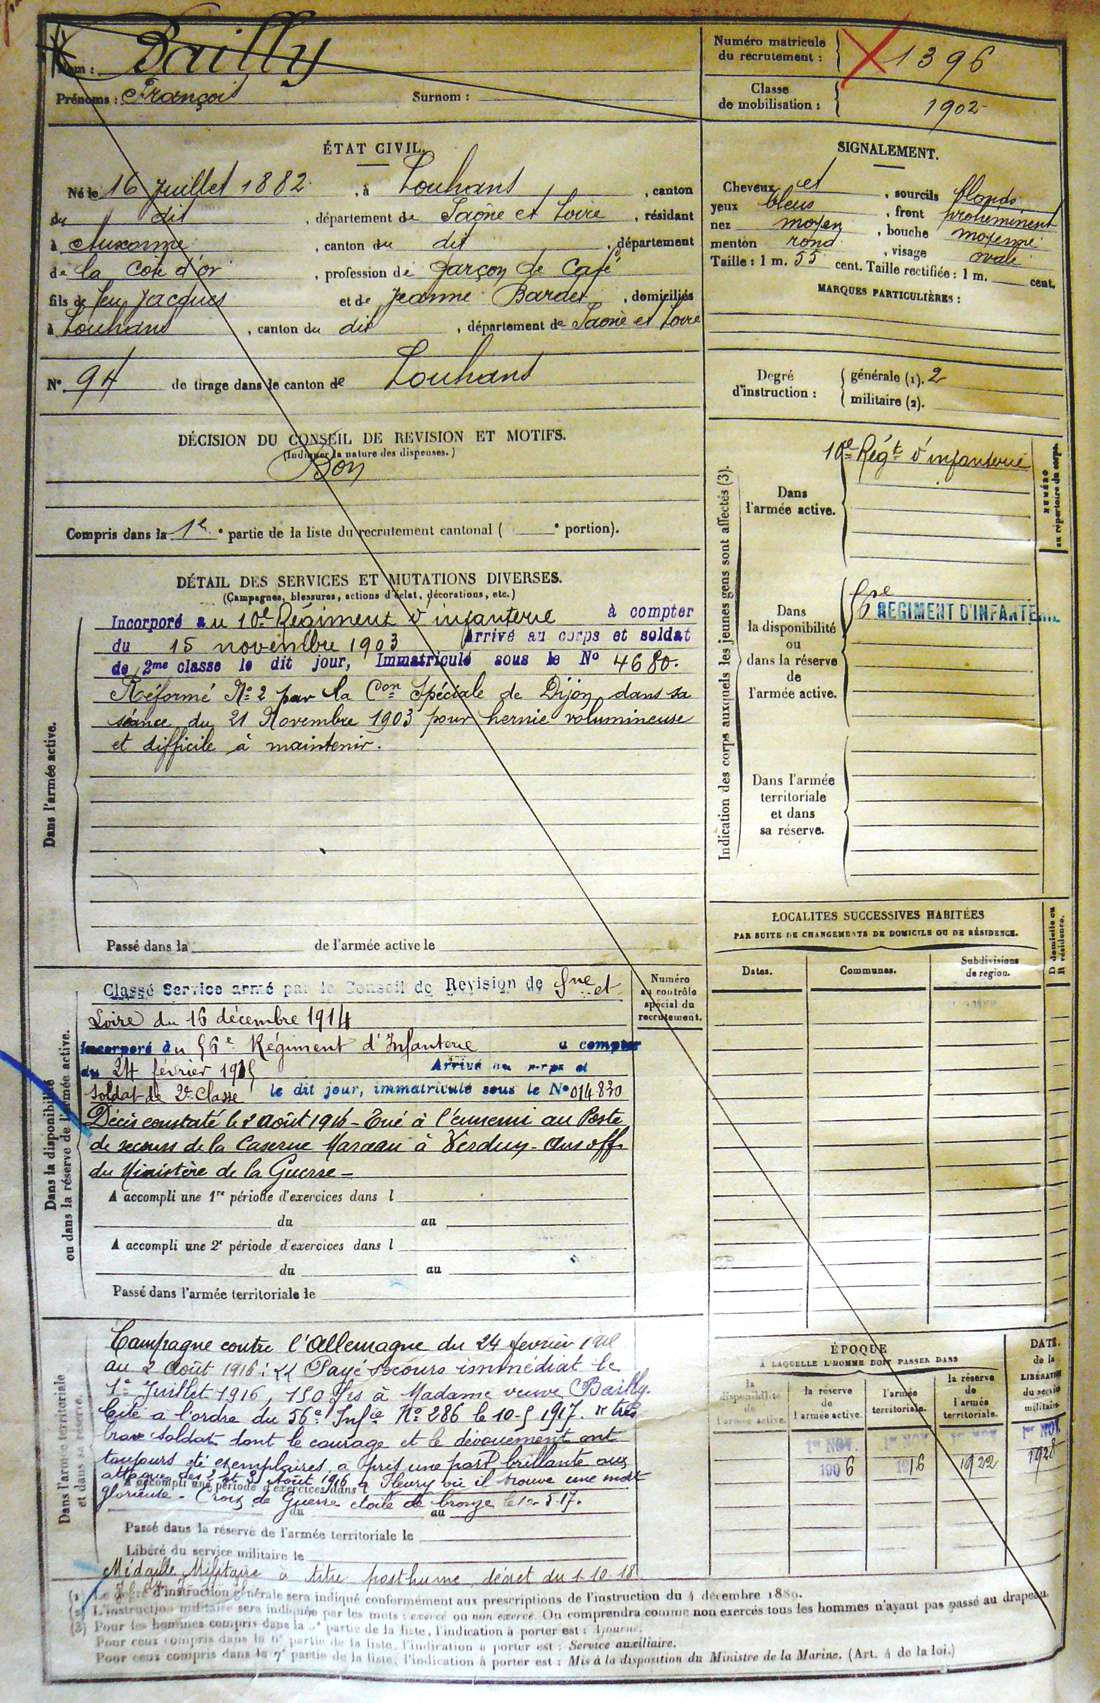 Nom : Bailly
Prénoms : François Surnom :
Numéro matricule du recrutement : 1396
Classe de mobilisation : 1902
ÉTAT CIVIL.
Né le 16 Juillet 1882, à Louhans, canton
du dit, département de Saône et Loire, résidant
à Auxonne, canton du dit, département
de la Côte d'or, profession de garçon de Café
fils de feu Jacques et de Jeanne Bardet, domiciliés
à Louhans, canton du dit, département de Saône et Loire
N° 94 de tirage dans le canton de Louhans
SIGNALEMENT.
Cheveux et, sourcils blonds
yeux bleus, front proheminent
nez moyen, bouche moyenne
menton rond, visage ovale
Taille : 1 m. 55 cent. Taille rectifiée : 1 m. cent.
MARQUES PARTICULIÈRES :
Degré d'instruction :
générale (1). 2
militaire (2).
DÉCISION DU CONSEIL DE REVISION ET MOTIFS.
(Indiquer la nature des dispenses.)
Bon
Compris dans la 1e partie de la liste du recrutement cantonal ( portion).
DÉTAIL DES SERVICES ET MUTATIONS DIVERSES.
(Campagnes, blessures, actions d'éclat, décorations, etc.)
Dans l'armée active.
Incorporé au 10e Régiment d'infanterie à compter
du 15 novembre 1903 Arrivé au corps et soldat
de 2me classe le dit jour, Immatriculé sous le N° 4680.
Réformé N° 2 par la Con Spéciale de Dijon dans sa
séance du 21 Novembre 1903 pour hernie volumineuse
et difficile à maintenir.
Passé dans la de l'armée active le
Indication des corps auxquels les jeunes gens sont affectés (3).
NUMÉRO au répertoire du corps.
Dans l'armée active.
10e Régt d'infanterie
Dans la disponibilité ou dans la réserve de l'armée active.
RÉGIMENT D'INFANTERIE
Dans l'armée territoriale et dans sa réserve.
LOCALITÉS SUCCESSIVES HABITÉES
PAR SUITE DE CHANGEMENTS DE DOMICILE OU DE RÉSIDENCE.
Dates. Communes. Subdivisions de region.
D domicile ou R résidence.
Dans la disponibilité
ou dans la réserve de l'armée active.
Numéro au contrôle spécial du recrutement.
Classé Service armé par le Conseil de Revision de Sne et
Loire du 16 décembre 1914
Incorporé au 56e Régiment d'Infanterie à compter
du 24 février 1915 Arrivé au corps et
soldat de 2e Classe le dit jour, immatriculé sous le N° 014830
Décès constaté le 2 août 1916 - Tué à l'ennemi au Poste
de secours de la Caserne Marceau à Verdun - Avis off.
du Ministère de la Guerre -
A accompli une 1re période d'exercices dans l
du au
A accompli une 2e période d'exercices dans l
du au
Passé dans l'armée territoriale le
Dans l'armée territoriale
et dans sa réserve.
Campagne contre l'Allemagne du 24 février
au 2 Août 1916. Payé secours immédiat le
1er Juillet 1916, 150 frs à Madame veuve Bailly.
Cité à l'ordre du 56e Infie N° 286 le 10-5 1917. "très
brave soldat dont le courage et le dévouement ont
toujours été exemplaires, a pris une part brillante aux
attaques des 2 et 3 Août 1916 à Fleury où il trouve une mort
A accompli une période d'exercices dans
glorieuse - Croix de Guerre étoile de bronze le 10-5-17.
du au
Passé dans la réserve de l'armée territoriale le
Libéré du service militaire le
Médaille Militaire à titre posthume, décret du 1-10-18
ÉPOQUE
A LAQUELLE L'HOMME DOIT PASSER DANS
DATE de la LIBÉRATION du service militaire.
la disponibilité de l'armée active.
la réserve de l'armée active.
l'armée territoriale.
la réserve de l'armée territoriale.
1er NOV. 1er NOV. 1er NOV. 1er NOV.
1906 1916 1922 1928
(1) Le degré d'instruction générale sera indiqué conformément aux prescriptions de l'instruction du 4 décembre 1889.
(2) L'instruction militaire sera indiquée par les mots : exercé ou non exercé. On comprendra comme non exercés tous les hommes n'ayant pas passé au drapeau.
(3) Pour les hommes compris dans la 5e partie de la liste, l'indication à porter est : Ajourné.
Pour ceux compris dans la 6e partie de la liste, l'indication à porter est : Service auxiliaire.
Pour ceux compris dans la 7e partie de la liste, l'indication à porter est : Mis à la disposition du Ministre de la Marine. (Art. 4 de la loi.)